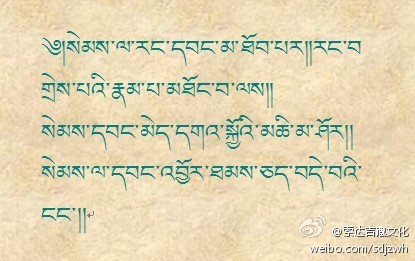 ༄།སེམས་ལ་རང་དབང་མ་ཐོབ་པར།།རང་བ
གྲེས་པའི་རྣམ་པ་མཐོང་བ་ལས།།
སེམས་དབང་མེད་དགའ་སྐྱོའི་མཆི་མ་ཤོར།།
སེམས་ལ་དབང་འབྱོར་ཐམས་ཅད་བདེ་བའི་
ངང་།།
@索达吉趣文化
weibo.com/sdjzwh